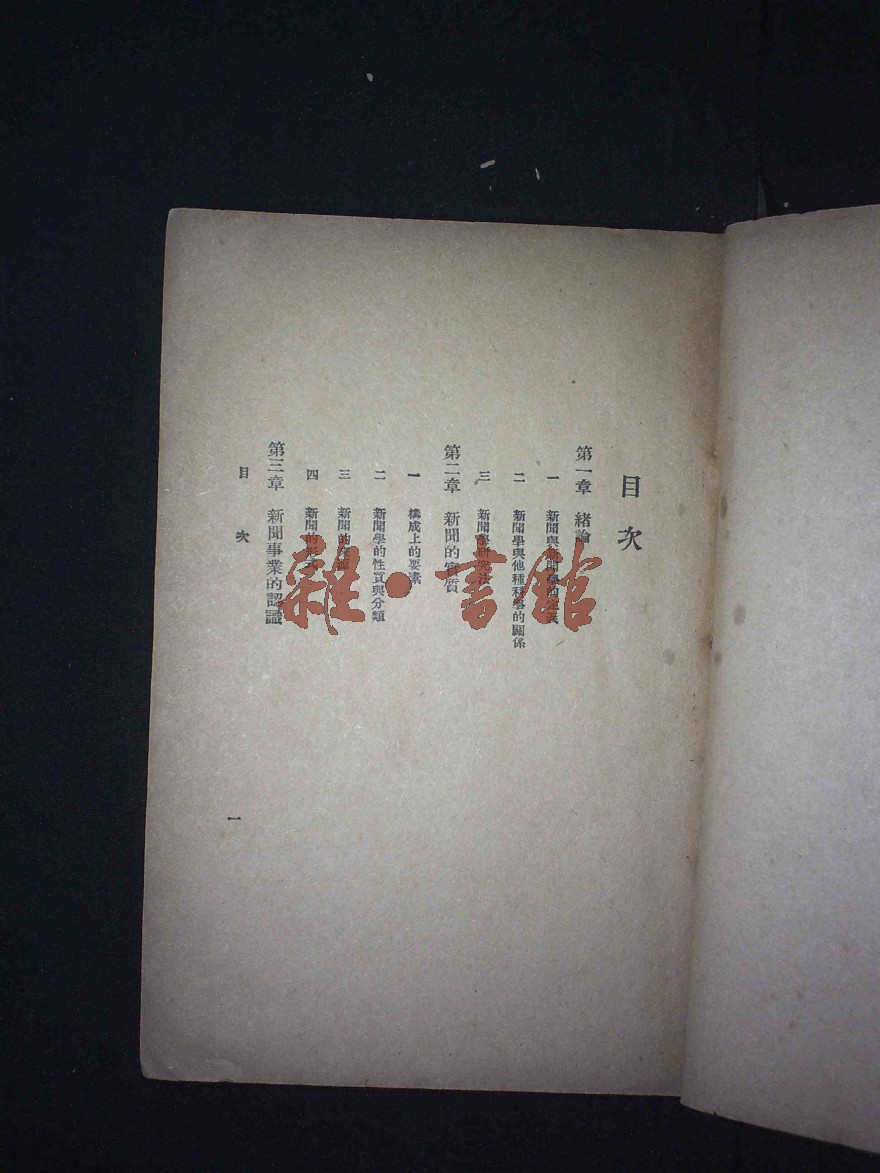 目次
第一章 緒論
一 新聞與新聞學的定義
二 新聞學與他種科學的關係
三 新聞學研究法
第二章 新聞的實質
一 構成上的要素
二 新聞學的性質與分類
三 新聞的
四 新聞的形式
第三章 新聞事業的認識
目次
一
雜·書館